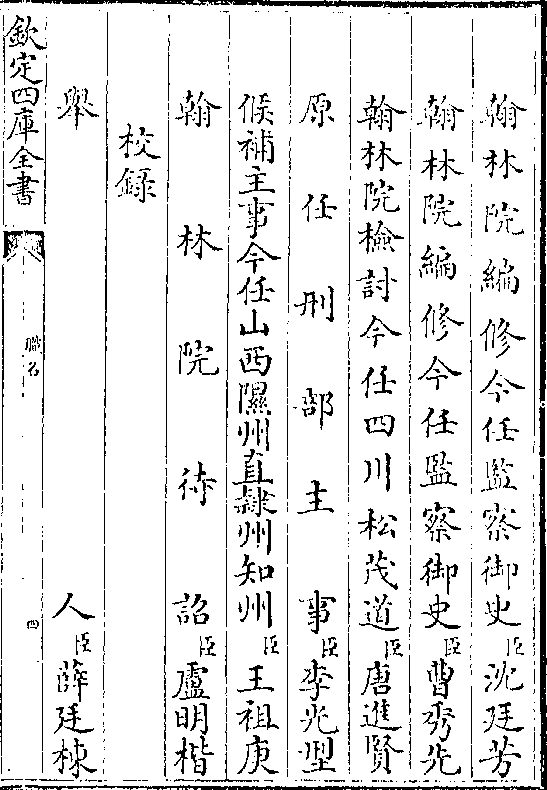 翰林院編修今任監察御史臣沈廷芳
翰林院編修今任監察御史臣曹秀先
翰林院檢討今任四川松茂道臣唐進賢
原任刑部主事臣李兆型
候補主事今任山西隰州直隷州知州臣王祖庚
翰林院待詔臣盧明楷
校録
舉人臣薛廷棟
欽定四庫全書
職名
四